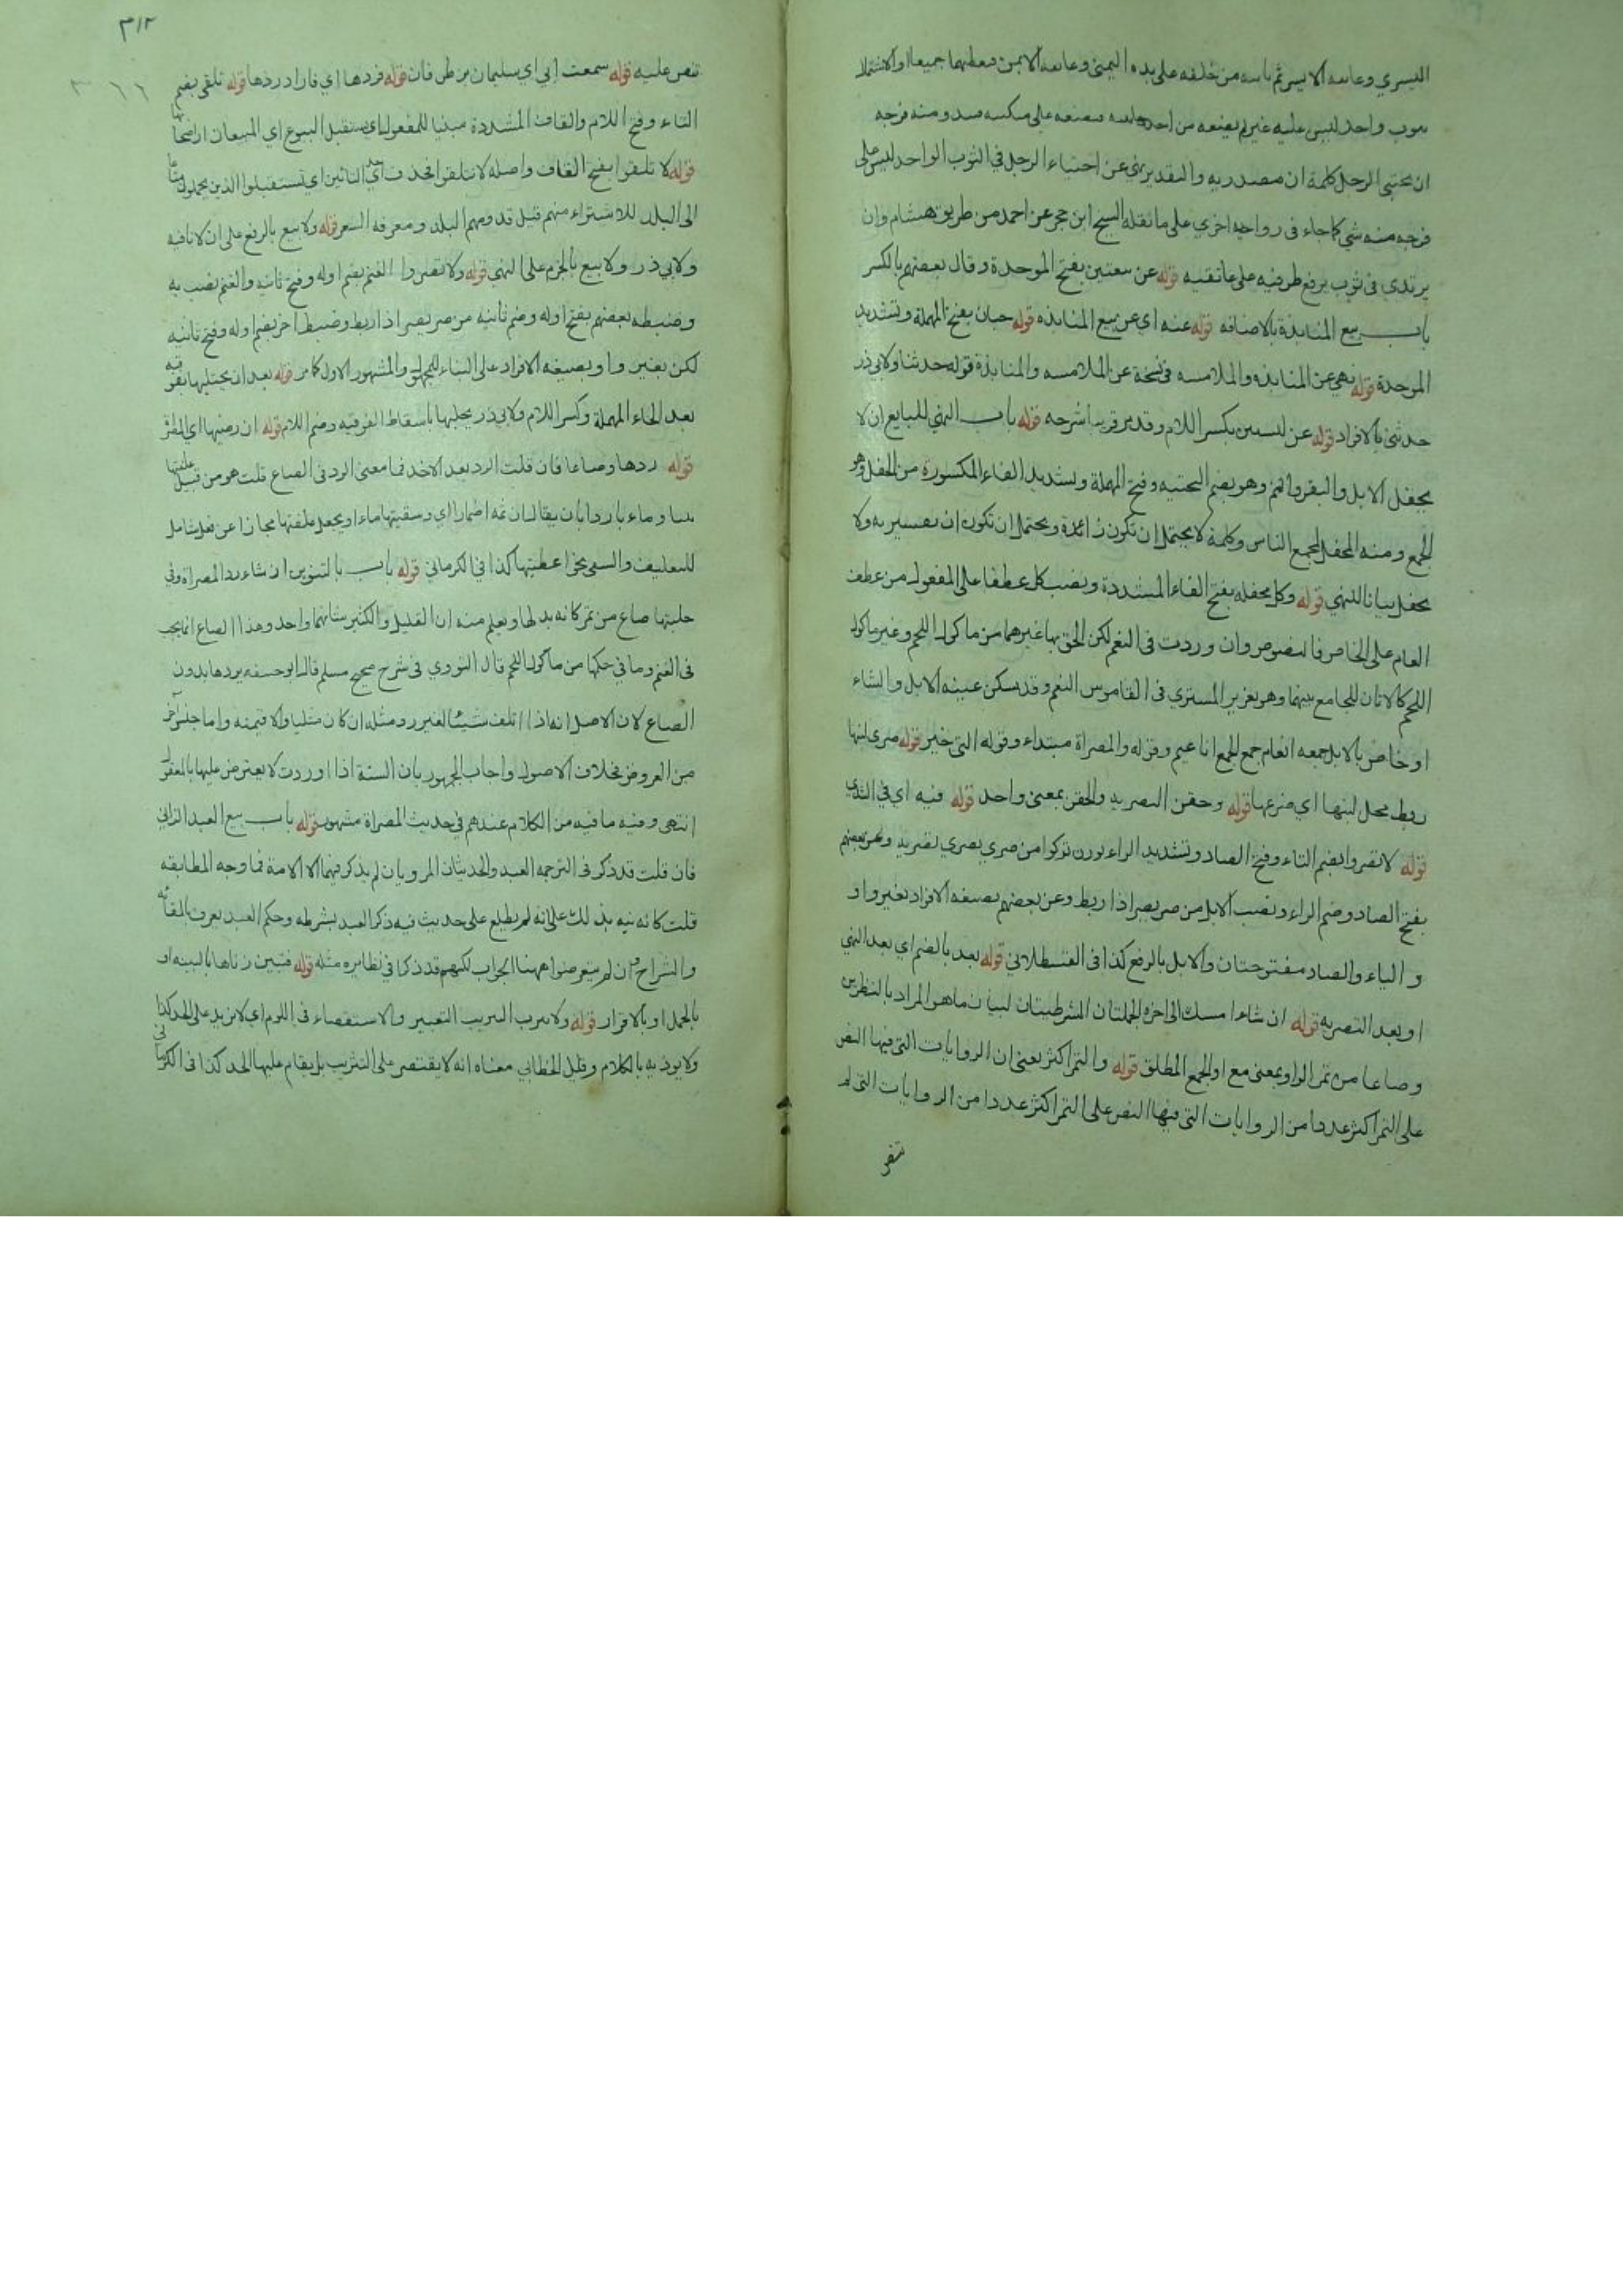 اليسري وعاتقه الايسر ثم ياتيه من خلفه على يده اليمنى وعاتقه الايمن فيغطيهما جميعا او الاشتمال
بثوب واحد ليس عليه غيره ثم يضعه من احد جانبيه فيضعه على منكبيه فيبدو منه فرجه
ان يحتبي الرجل كلمة ان مصدريه والتقدير نهي عن احتباء الرجل في الثوب الواحد ليس على
فرجه منه شي كما جاء في رواية اخري على ما نقله الشيخ ابن حجر عن احمد من طريق هشام وان
يرتدي في ثوب يرفع طرفيه على عاتقيه قوله عن بيعتين بفتح الموحدة وقال بعضهم بالكسر
باب بيع المنابذة بالاضافه قوله عنه اي عن بيع المنابذه قوله حبان بفتح المهملة وتشديد
الموحدة قوله نهى عن المنابذه والملامسه في نسخة عن الملامسه والمنابذة قوله حدثنا ولابي ذر
حدثني بالافراد قوله عن لبستين بكسر اللام وقد مر قريبا شرحه قوله باب النهي للبايع ان لا
يحفل الابل والبقر والغنم وهو بضم التحتيه وفتح المهملة وتشديد الفاء المكسورة من الحفل وهو
الجمع ومنه المحفل لمجمع الناس وكلمة لا يحتمل ان تكون زائدة ويحتمل ان تكون ان تفسيريه ولا
يحفل بيانا للنهي قوله وكل محفله بفتح الفاء المشددة ونصب كل عطفا على المفعول من عطف
العام على الخاص فالنصوص وان وردت في النعم لكن الحق بها غيرهما من ماكول اللحم وغير ماكول
اللحم كالاتان للجامع بينهما وهو تغرير المشتري في القاموس النعم وقد سكن عينه الابل والشاء
او خاص بالابل جمعه انعام جمع الجمع اناعيم وقوله والمصراة مبتداء وقوله التي خبر قوله صرى لبنها
ربط محل لبنها اي ضرعها قوله وحقن التصريه والحقن بمعنى واحد قوله فيه اي في الثدي
قوله لا تصروا بضم التاء وفتح الصاد وتشديد الراء بوزن تزكوا من صري يصري تصريه وعن بعضهم
بفتح الصاد وضم الراء ونصب الابل من صر يصر اذا ربط وعن بعضهم بصيغه الافراد بغير واو
والياء والصاد مفتوحتان والابل بالرفع كذا في القسطلاني قوله بعد بالضم اي بعد النهي
او بعد التصريه قوله ان شاء امسك الى اخره الجملتان الشرطيتان لبيان ما هو المراد بالنظرين
وصاعا من تمر الواو بمعنى مع او للجمع المطلق قوله والتمر اكثر يعني ان الروايات التي فيها النص
على التمر اكثر عددا من الروايات التي فيها النص على التمر اكثر عددا من الروايات التي لم
تنص
٣١٢
٣٦٦
تنص عليه قوله سمعت ابي اي سليمان بن طرخان قوله فردها اي فاراد ردها قوله تلقى بضم
التاء وفتح اللام والقاف المشددة مبنيا للمفعول اي تستقبل البيوع اي المبيعات او اصحابها
قوله لا تلقوا بفتح القاف واصله لا تتلقوا فحذفت احدى التائين اي لا تستقبلوا الذين يحملون متاعا
الى البلد للاشتراء منهم قبل قدومهم البلد ومعرفه السعر قوله ولا يبيع بالرفع على ان لا نافيه
ولابي ذر ولا يبع بالجزم على النهي قوله ولا تصروا الغنم بضم اوله وفتح ثانيه والغنم نصب به
وضبطه بعضهم بفتح اوله وضم ثانيه من صر يصر اذا ربط وضبط اخر بضم اوله وفتح ثانيه
لكن بغير واو بصيغه الافراد على البناء للمجهول والمشهور الاول كما مر قوله بعد ان يحتلبها بفوقيه
بعد الحاء المهملة وكسر اللام ولابي ذر يحلبها باسقاط الفوقيه وضم اللام قوله ان رضيها اي المصراة
قوله ردها وصاعا فان قلت الرد بعد الاخذ فما معنى الرد في الصاع قلت هو من قبيل علفتها
تبنا وماء باردا بان يقال ان ثمه اضمارا اي وسقيتها ماء او يجعل علفتها مجازا عن فعل شامل
للتعليف والسقي نحو اعطيتها كذا في الكرماني قوله باب بالتنوين ان شاء رد المصراة وفي
حلبتها صاع من تمر كانه بدلها ويعلم منه ان القليل والكثير شانهما واحد وهذا الصاع انما يجب
في الغنم وما في حكمها من ماكول اللحم قال النووي في شرح صحيح مسلم قال ابو حنيفه يردها بدون
الصاع لان الاصل انه اذا اتلف شيئا لغيره رد مثله ان كان مثليا والا قيمته واما جنس آخر
من العروض فخلاف الاصول واجاب الجمهور بان السنة اذا وردت لا يعترض عليها بالمعقول
انتهى وفيه ما فيه من الكلام عندهم في حديث المصراة مشهور قوله باب بيع العبد الزاني
فان قلت قد ذكر في الترجمه العبد والحديثان المرويان لم يذكر فيهما الا الامة فما وجه المطابقه
قلت كانه نبه بذلك على انه لم يطلع على حديث فيه ذكر العبد بشرطه وحكم العبد يعرف بالمقايسه
والشراح وان لم يتعرضوا ههنا الجواب لكنهم قد ذكرا في نظايره مثله قوله فتبين زناها بالبينه او
بالحمل او بالاقرار قوله ولا يثرب التثريب التعيير والاستقصاء في اللوم اي لا يزيد على الحد كذا في
ولا يوذيه بالكلام وقيل الخطابي معناه انه لا يقتصر على التثريب بل يقام عليها الحد كذا في الكرماني